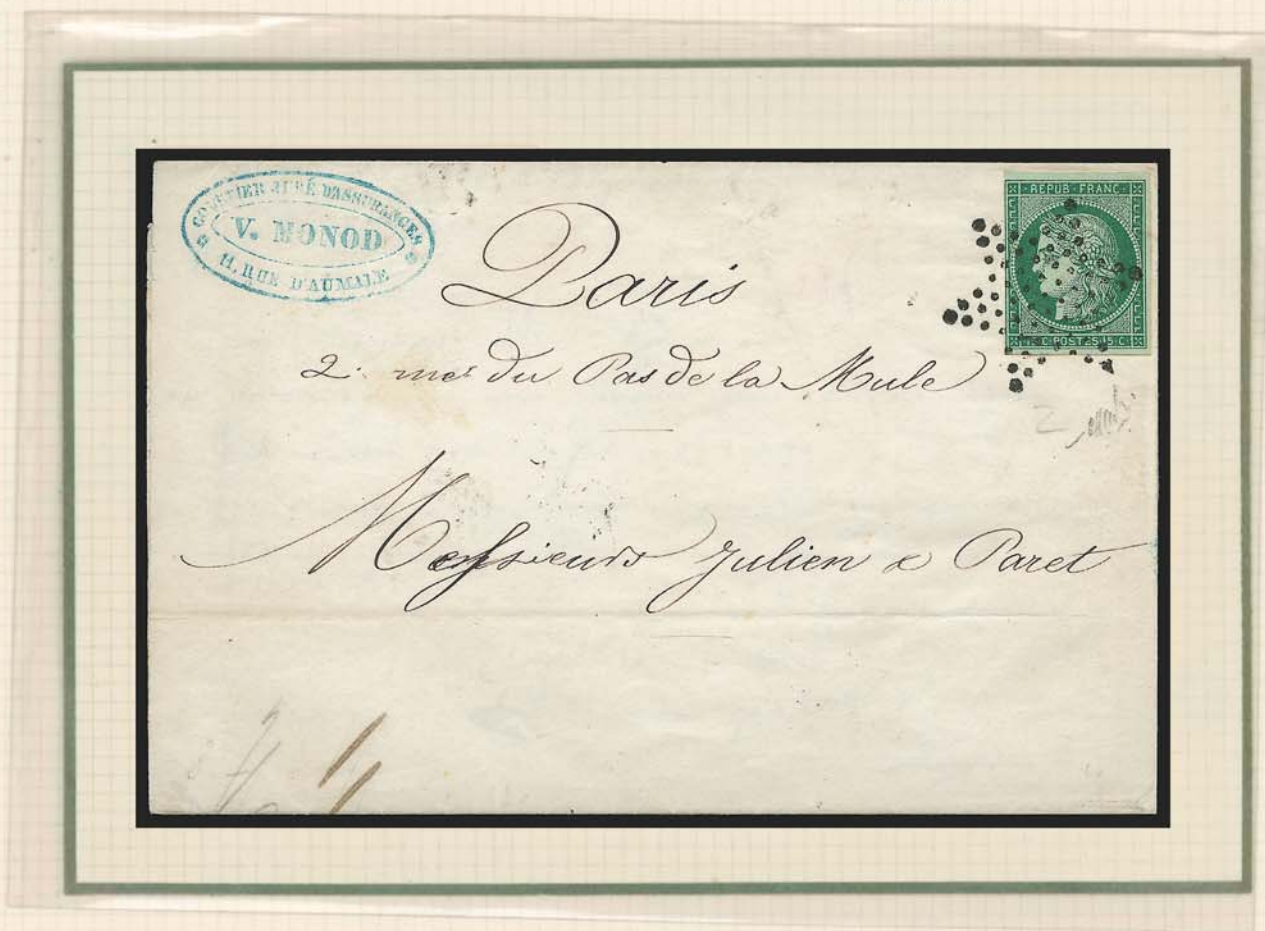 COURTIER JURÉ D'ASSURANCES
V. MONOD
11, RUE D'AUMALE
REPUB · FRANC ·
15 C POSTES 15 C
Paris
2. rue du Pas de la Mule
2
Messieurs Julien & Paret